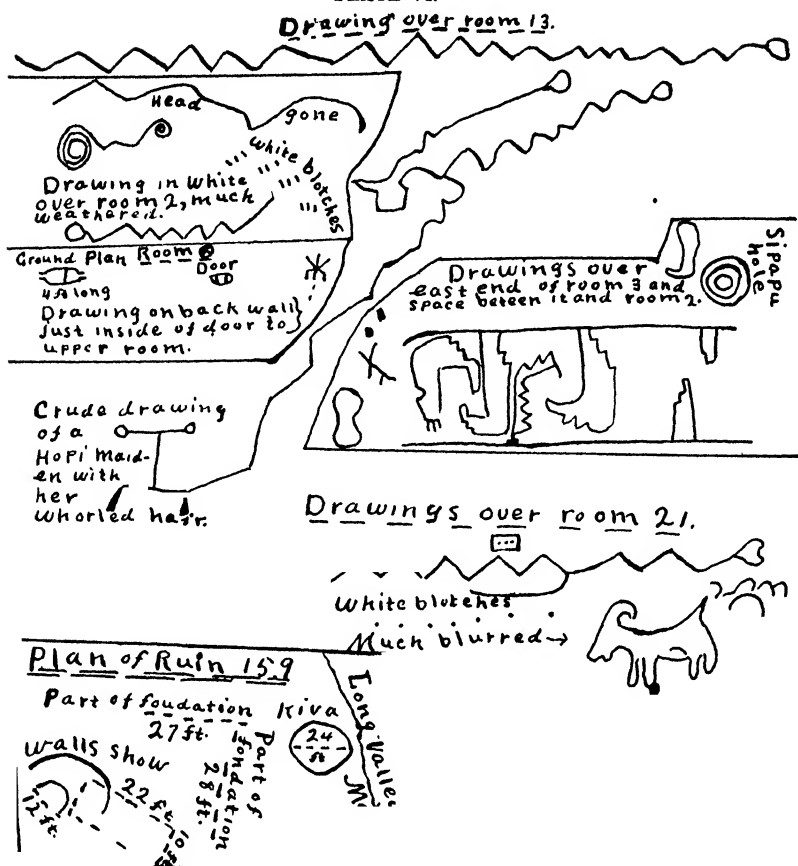 Drawing over room 13.
Head
gone
white blotches
Drawing in white
over room 2, much
weathered.
Ground Plan Room
Door
4 ft long
Drawing on back wall
Just inside of door to
upper room.
Sipapu
hole
Drawings over
east end of room 3 and
space beteen it and room 2.
Crude drawing
of a
Hopi maid-
en with
her
whorled hair.
Drawings over room 21.
White blotches
Much blurred
Plan of Ruin 159
Part of foudation
27 ft.
Part of
fondation
28 ft.
Kiva
24
ft
Long Valley
walls show
22 ft.
15 ft.